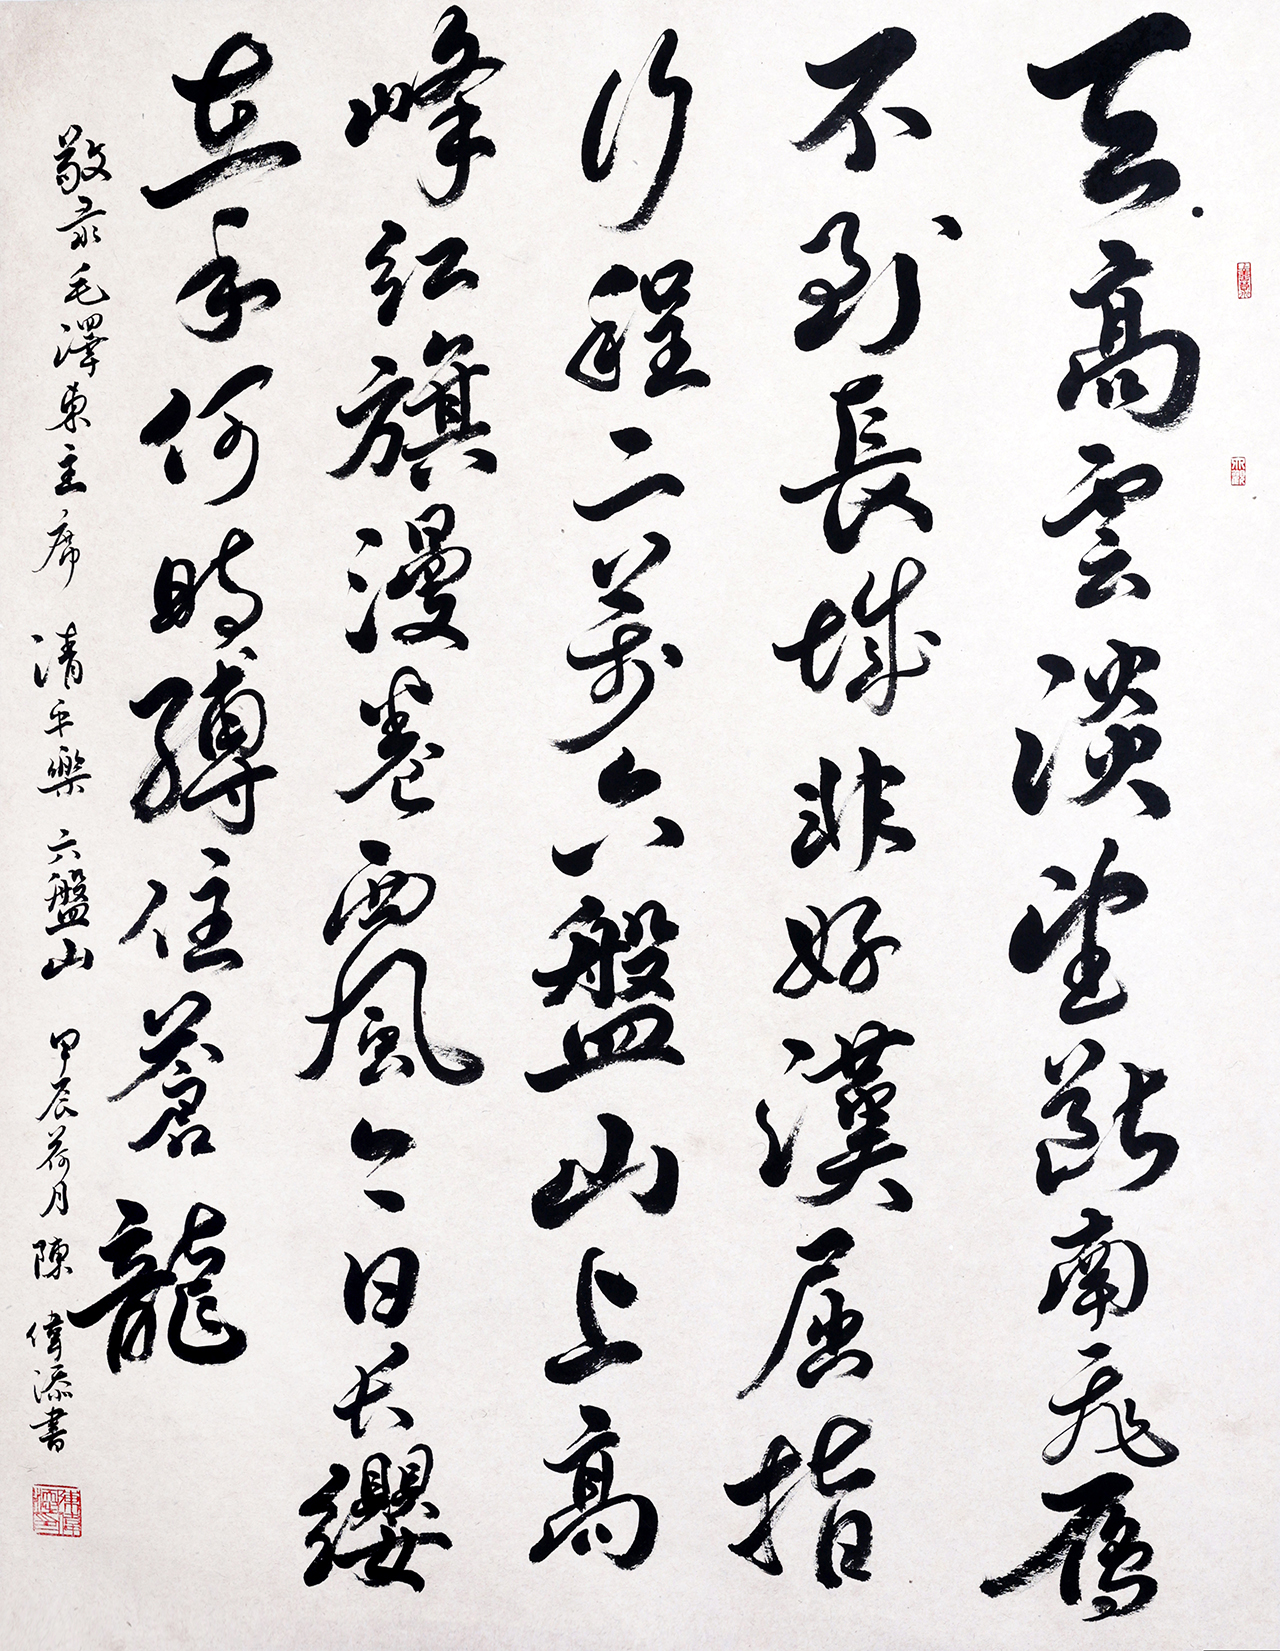 天高雲淡望斷南飛雁
不到長城非好漢屈指
行程二萬六盤山上高
峰紅旗漫卷西風今日長纓
在手何時縛住蒼龍
敬录毛澤東主席 清平樂 六盤山 甲辰荷月 陳偉添書